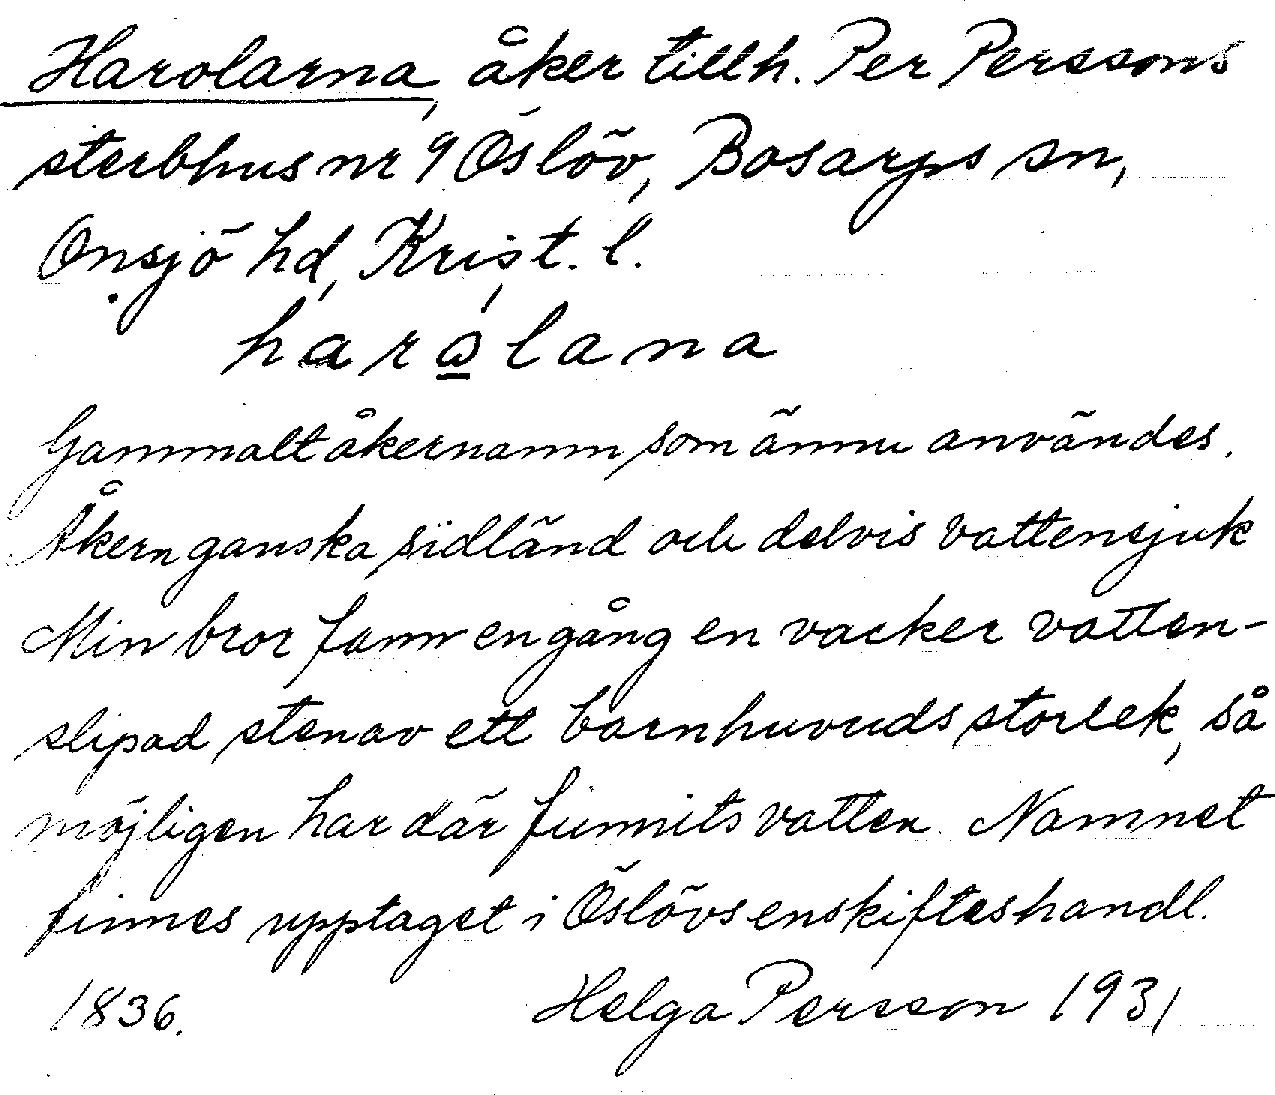 Harolarna, åker tillh. Per Perssons
sterbhus nr 9 Öslöv, Bosarps sn,
Onsjö hd, Krist. l.
haralana
Gammalt åkernamn som ännu användes.
Åkern ganska sidländ och delvis vattensjuk
Min bror fann en gång en vacker vatten-
slipad sten av ett barnhuvuds storlek, så
möjligen har där funnits vatten. Namnet
finnes upptaget i Öslövs enskifteshandl.
1836. Helga Persson 1931